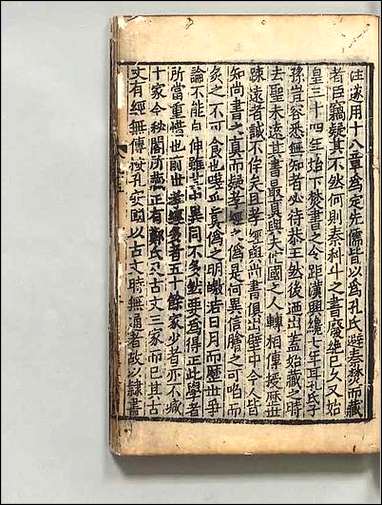 注遂用十八章為定先儒皆以為孔氏避秦焚而藏
書臣竊疑其不然何則秦科斗之書廢絕已久又始
皇三十四年始下焚書之令距漢興纔七年耳孔氏子
孫豈容悉無知者必待恭王然後迺出蓋始藏之時
去聖未遠其書最真與夫他國之人轉相傳授歷世
疎遠者誠不侔矣且孝經與尚書俱出壁中今人皆
知尚書之真而疑孝經之偽是何異信膾之可啗而
炙之不可食也嗟乎真偽之明皦若日月而歷世爭
論不能自伸雖其中異同不多然要為得正此學者
所當重惜也前世孝經多者五十餘家少者亦不減
十家今秘閣所藏正有鄭氏及古文三家而已其古
文有經無傳按孔安國以古文時無通者故以隸書